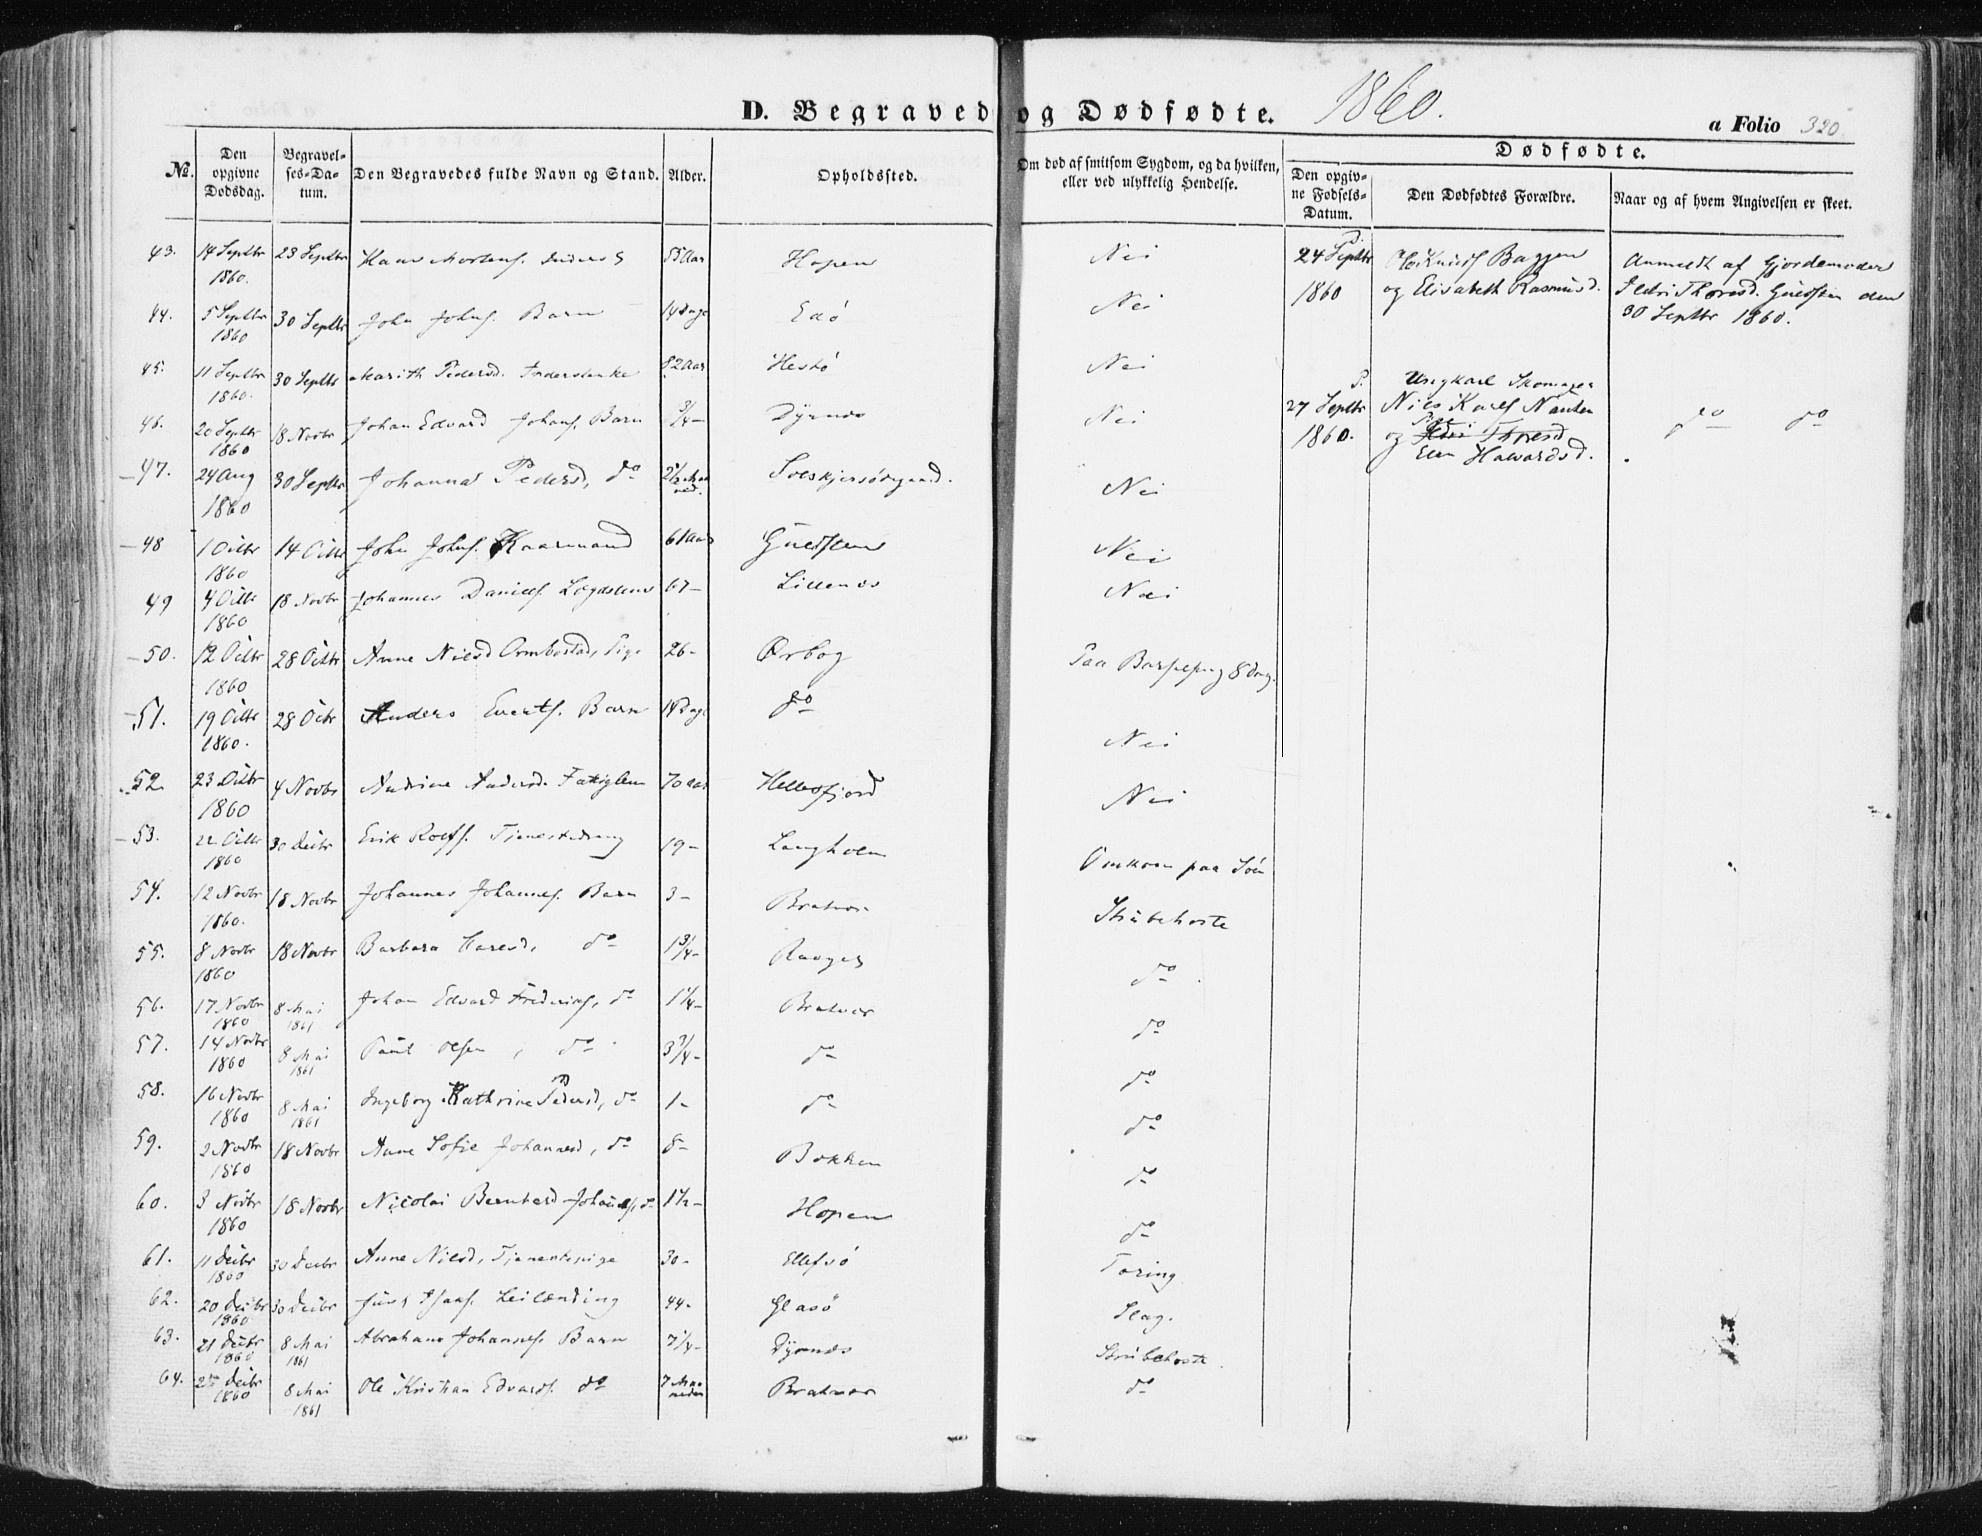 D. Begravede og Dødfødte. 1860. a Folio 320.
No. | Den opgivne Dødsdag. | Begravelses-Datum. | Den Begravedes fulde Navn og Stand. | Alder. | Opholdssted. | Om død af smitsom Sygdom, og da hvilken, eller ved ulykkelig Hendelse.
Dødfødte.
Den opgivne Fødsels-Datum. | Den Dødfødtes Forældre. | Naar og af hvem Angivelsen er skeet.
43. 14 Septbr 1860. 23 Septbr Hans Mortens. 55 Aar Hopen Nei
44. 5 Septbr 1860 30 Septbr John Johns. Barn 14 Dage Edø Nei
45. 11 Septbr 1860. 30 Septbr Marith Pedersd. 82 Aar Hestø Nei
46. 20 Septbr 1860 18 Novbr Johan Edvard Johans. Barn 3/4 – Dyrnæs Nei
47. 24 Aug 1860 30 Septbr Johanna Pedersd, do 2 1/2 Maaned. Nei
48 1 Octbr 1860 14 Octbr John Johns. Kaarmand 61 Aar Guldsten Nei
49 4 Octbr 1860 18 Novbr Johannes Daniels. 67 – Lillenæs Nei
50. 12 Octbr 1860 28 Octbr Anne Nilsd Ormbostad, Pige 26 – Ørbog Paa Barselseng 8 Dag.
51. 19 Octbr 1860. 28 Octbr Anders Everts. Barn 18 Dage do Nei
52 23 Octbr 1860 4 Novbr Andrine Andersd. Fattiglem 70 Aar Hellesfjord Nei
53. 22 Octbr 1860 30 Decbr Erik Rolfs. Tjenestedreng 19 – Langholm Omkom paa Søen
54. 12 Novbr 1860. 18 Novbr Johannes Johannes. Barn 3 – Bratvær Strubehoste
55. 8 Novbr 1860 18 Novbr Barbara Laresd, do 1 3/4 – do
56. 17 Novbr 1860 8 Mai 1861 Johan Edvard Frederiks, do 1 1/4 – Bratvær do
57. 14 Novbr 1860 8 Mai 1861 Paul Olsen, do 3 3/4 – do do
58. 16 Novbr 1860 8 Mai 1861 Ingeborg Kathrine Pedersd, do 1 – do do
59. 2 Novbr 1860 18 Novbr Anne Sofie Johannesd, do 8 – Bokken do
60. 3 Novbr 1860 18 Novbr Nicolai Bernhard Johans, do 1 1/2 – Hopen do
61. 11 Decbr 1860 30 Decbr Anne Nilsd, Tjenestepige 30 – Ellefsø Tæring.
62. 20 Decbr 1860 30 Decbr Leilænding 44 – Glasø Slag.
63. 21 Decbr 1860 8 Mai 1861 Abraham Johannes. Barn 7 1/4 – Dyrnæs Strubehoste.
64. Decbr 1860 8 Mai 1861 Ole Kristian Edvards. do 7 Maaneder Bratvær do
P. 24 Septbr 1860 Ole Knuds Baggen
og Elisabeth Rasmusd.
Anmeldt af Gjordemoder
Thoresd. Guldsten den
30 Septbr 1860.
P. 27 Septbr 1860. Ungkarl Skomager
Nils Karls
og Pige Thoresd
Elen Halvardsd.
do do